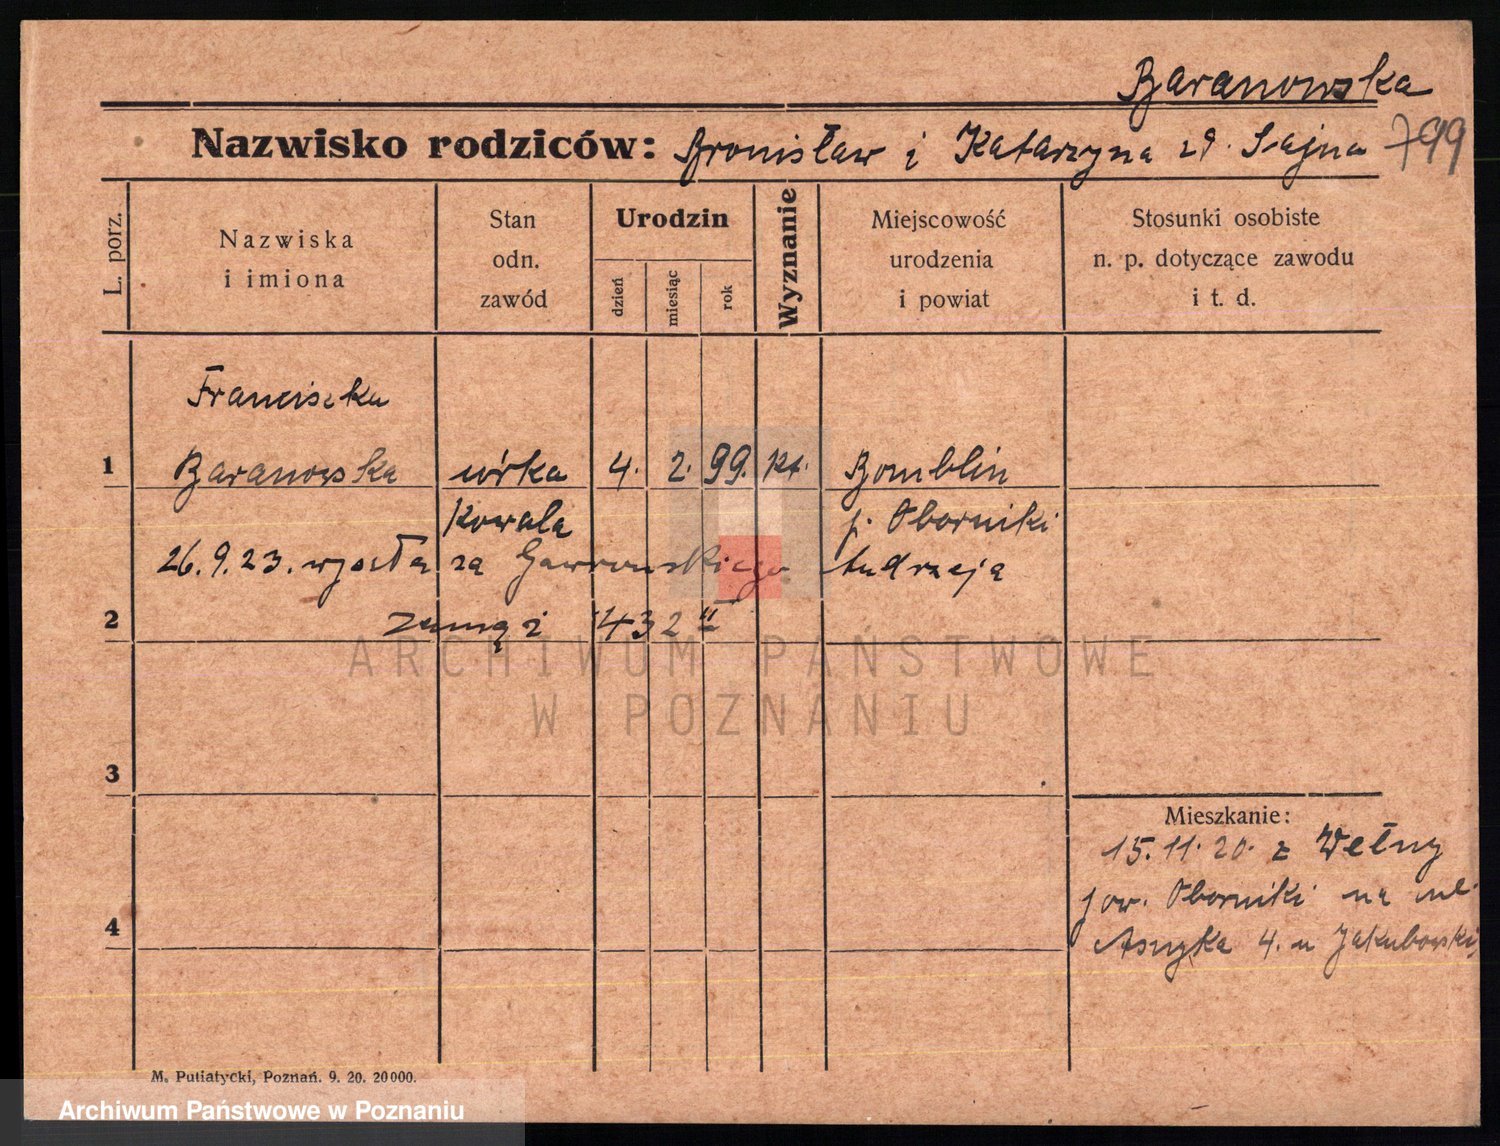 Baranowska
Nazwisko rodziców: Bronisław i Katarzyna zd. Sajna 799
L. porz.
Nazwiska
i imiona
Stan
odn.
zawód
Urodzin
dzień
miesiąc
rok
Wyznanie
Miejscowość
urodzenia
i powiat
Stosunki osobiste
n. p. dotyczące zawodu
i t. d.
Franciszka
1 Baranowska córka 4. 2. 99. kt. Bomblin
kowala p. Oborniki
26.9.23. wyszła za Gawrowskiego Andrzeja
2 zamąż 432
ARCHIWUM PAŃSTWOWE
W POZNANIU
3
Mieszkanie:
15.11.20. z Wełny
pow. Oborniki na ul.
4 Asnyka 4. u Jakubowski
M. Putiatycki, Poznań. 9. 20. 20000.
Archiwum Państwowe w Poznaniu